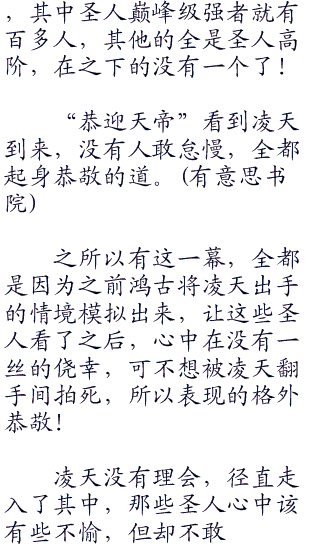 ，其中圣人巅峰级强者就有
百多人，其他的全是圣人高
阶，在之下的没有一个了！
“恭迎天帝”看到凌天
到来，没有人敢怠慢，全都
起身恭敬的道。(有意思书
院)
之所以有这一幕，全都
是因为之前鸿古将凌天出手
的情境模拟出来，让这些圣
人看了之后，心中在没有一
丝的侥幸，可不想被凌天翻
手间拍死，所以表现的格外
恭敬！
凌天没有理会，径直走
入了其中，那些圣人心中该
有些不愉，但却不敢